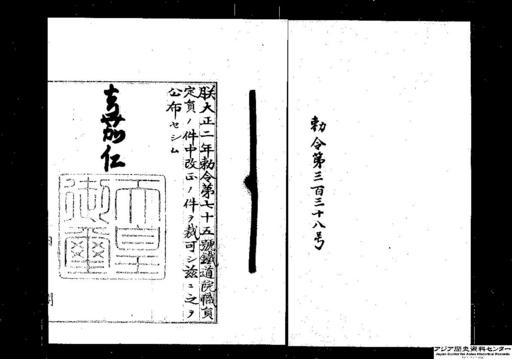 勅令第三百三十八号
朕大正二年勅令第七十五號鐵道院職員
定員ノ件中改正ノ件ヲ裁可シ茲ニ之ヲ
公布セシム
嘉仁
天皇
御璽
アジア歴史資料センター
Japan Center for Asian Historical Records